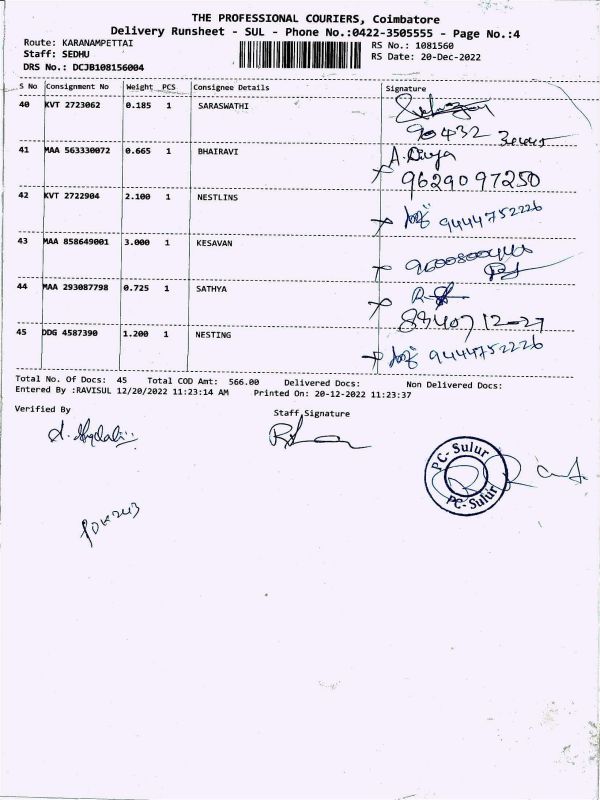 THE PROFESSIONAL COURIERS, Coimbatore
Delivery Runsheet - SUL - Phone No.:0422-3505555 - Page No.:4
Route: KARANAMPETTAI
RS No.: 1081560
Staff: SEDHU
RS Date: 20-Dec-2022
DRS No.: DCJB108156004
S No Consignment No Weight PCS Consignee Details Signature
40 KVT 2723062 0.185 1 SARASWATHI
90432
41 MAA 563330072 0.665 1 BHAIRAVI A. Divya
9629097250
42 KVT 2722904 2.100 1 NESTLINS
9444752226
43 MAA 858649001 3.000 1 KESAVAN
44 MAA 293087798 0.725 1 SATHYA
45 DDG 4587390 1.200 1 NESTING
9444752226
Total No. Of Docs: 45 Total COD Amt: 566.00 Delivered Docs: Non Delivered Docs:
Entered By :RAVISUL 12/20/2022 11:23:14 AM Printed On: 20-12-2022 11:23:37
Verified By Staff Signature
PC- Sulur
PC- Sulur